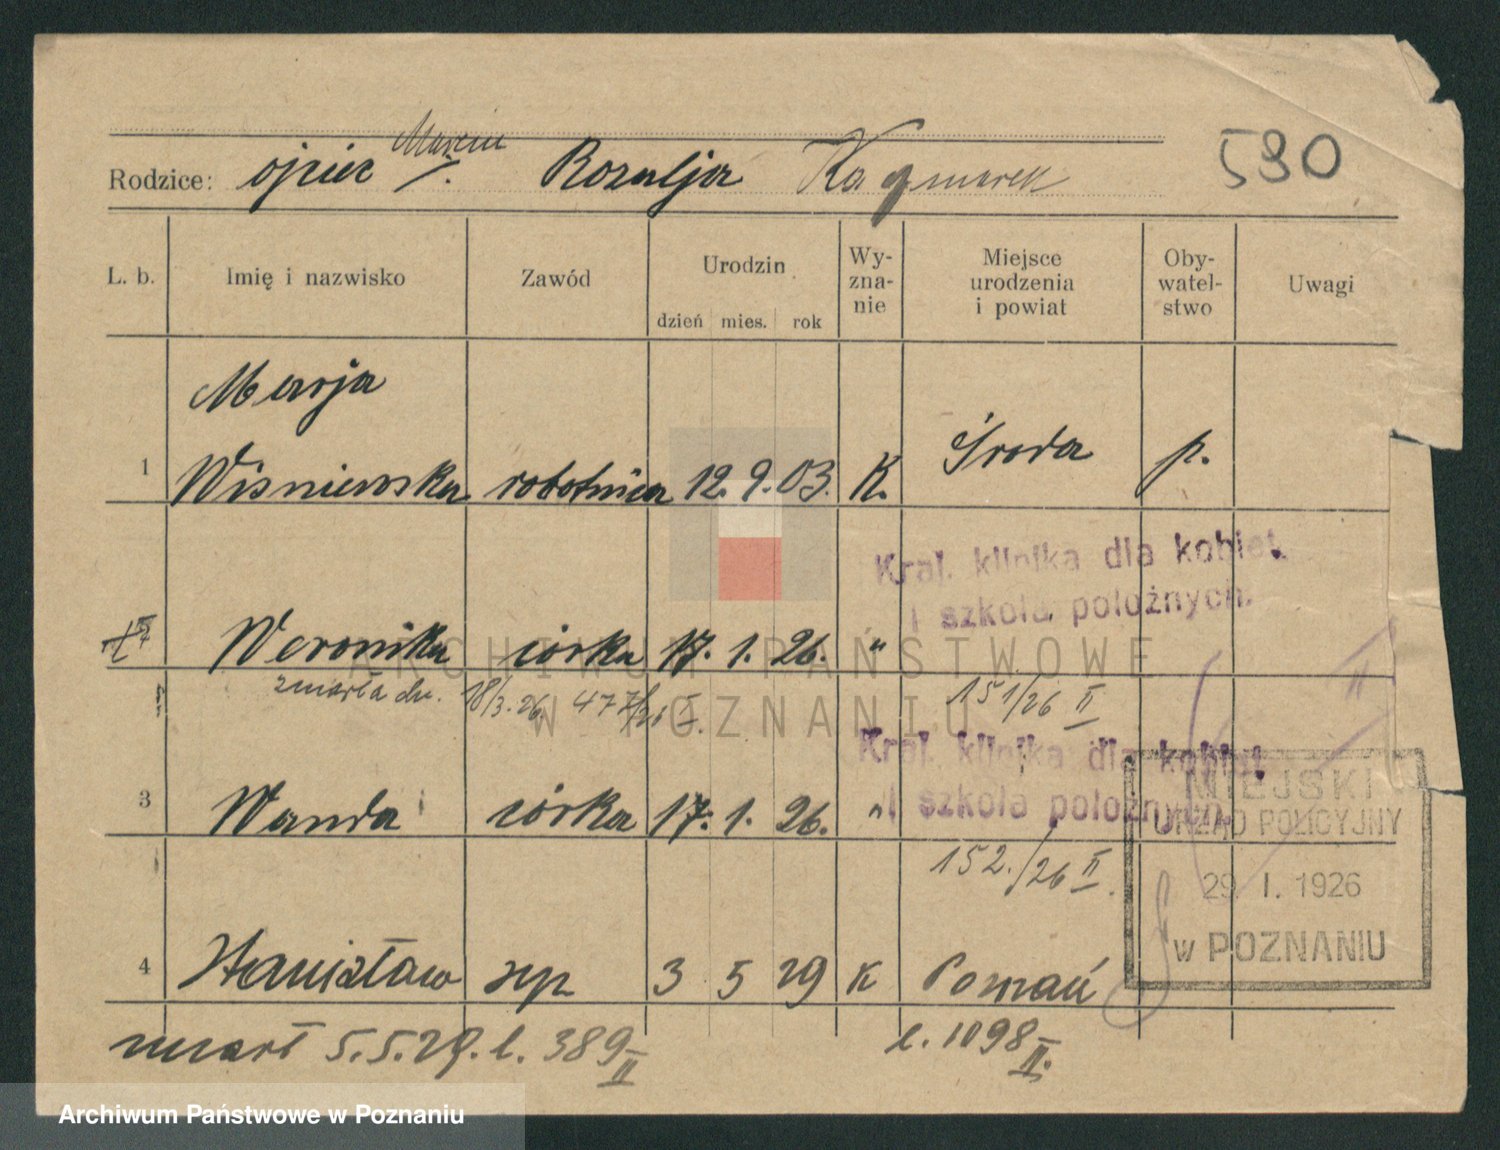 Marcin
590
Rodzice: ojciec /. Rozalja Kaczmarek
L. b. Imię i nazwisko Zawód Urodzin Wy-zna-nie Miejsce urodzenia i powiat Oby-watel-stwo Uwagi
dzień mies. rok
Marja
1 Wiśniewska robotnica 12. 9. 03. K. Środa p.
Kral. klinika dla kobiet
i szkola położnych.
Weronika córka 17. 1. 26. "
zmarła dn. 18/3. 26. 477/26 II. 151/26 II
Kral. klinika dla kobiet
i szkola położnych.
3 Wanda córka 17. 1. 26. "
152./26 II.
MIEJSKI
URZĄD POLICYJNY
29. I. 1926
w POZNANIU
4 Stanisław syn 3 5 29 K Poznań
zmarł 5.5.29. l. 389 II l. 1098 II.
ARCHIWUM PAŃSTWOWE
W POZNANIU
Archiwum Państwowe w Poznaniu